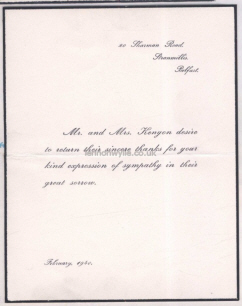 Sherman Road,
Stranmillis,
Belfast.
Mr. and Mrs. Kenyon desire
to return their sincere thanks for your
lennonwylie.co.uk
kind expression of sympathy in their
great sorrow.
February, 1941.